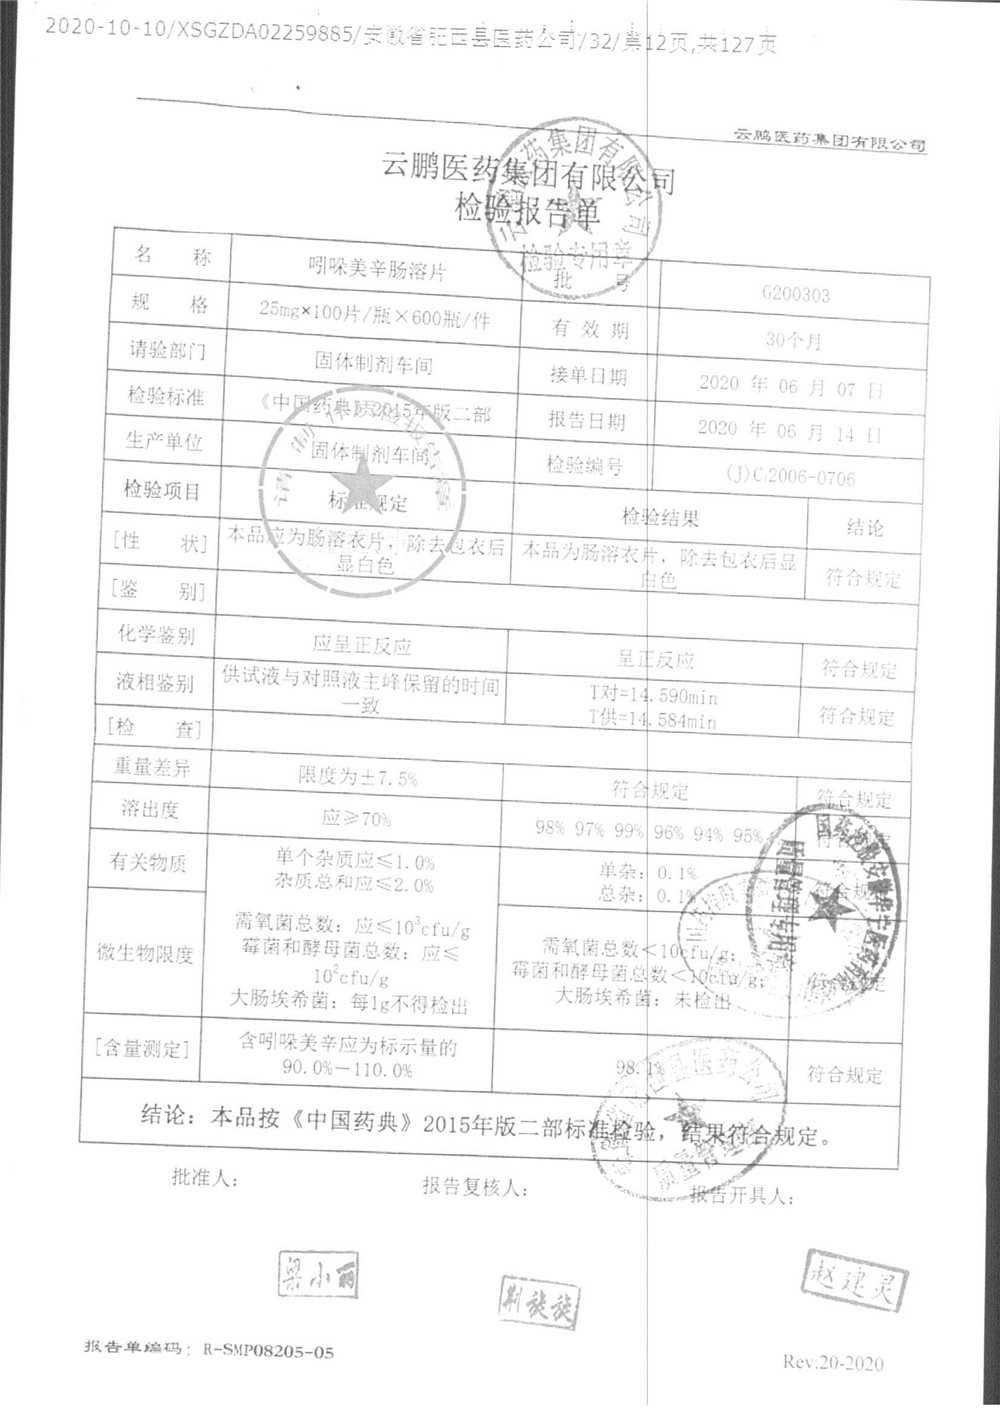 2020-10-10/XSGZDA02259885/安徽省肥西县医药公司/32/第12页,共127页
云鹏医药集团有限公司
云鹏医药集团有限公司
检验报告单
检验专用章
名 称 吲哚美辛肠溶片 批 号 G200303
规 格 25mg×100片/瓶×600瓶/件 有 效 期 30个月
请验部门 固体制剂车间 接单日期 2020 年 06 月 07 日
检验标准 《中国药典》2015年版二部 报告日期 2020 年 06 月 14 日
生产单位 固体制剂车间 检验编号 (J)C2006-0706
检验项目 标准规定 检验结果 结论
[性 状] 本品应为肠溶衣片，除去包衣后显白色 本品为肠溶衣片，除去包衣后显白色 符合规定
[鉴 别]
化学鉴别 应呈正反应 呈正反应 符合规定
液相鉴别 供试液与对照液主峰保留的时间一致 T对=14.590min
T供=14.584min 符合规定
[检 查]
重量差异 限度为±7.5% 符合规定 符合规定
溶出度 应≥70% 98% 97% 99% 96% 94% 95% 符合规定
有关物质 单个杂质应≤1.0%
杂质总和应≤2.0% 单杂：0.1%
总杂：0.1% 符合规定
微生物限度 需氧菌总数：应≤10³cfu/g
霉菌和酵母菌总数：应≤
10²cfu/g
大肠埃希菌：每1g不得检出 需氧菌总数<10cfu/g；
霉菌和酵母菌总数<10cfu/g；
大肠埃希菌：未检出 符合规定
[含量测定] 含吲哚美辛应为标示量的
90.0%—110.0% 98.1% 符合规定
结论：本品按《中国药典》2015年版二部标准检验，结果符合规定。
批准人： 报告复核人： 报告开具人：
梁小丽
赵建灵
报告单编码：R-SMP08205-05
Rev.20-2020